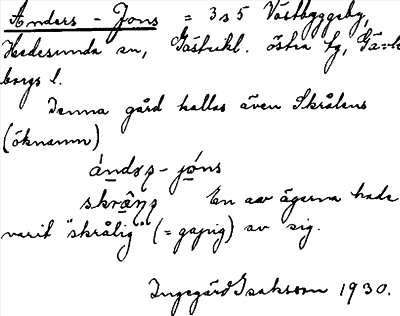 Anders - Jons = 3 s 5 Västbyggeby,
Hedesunda sn, Gästrikl. östra tg, Gävle
borgs l.
Denna gård kallas även Skrålens
(öknamn)
skrå̲ŋs En av ägarna hade
varit "skrålig" (= gapig) av sig.
Ingegärd Isaksson 1930.